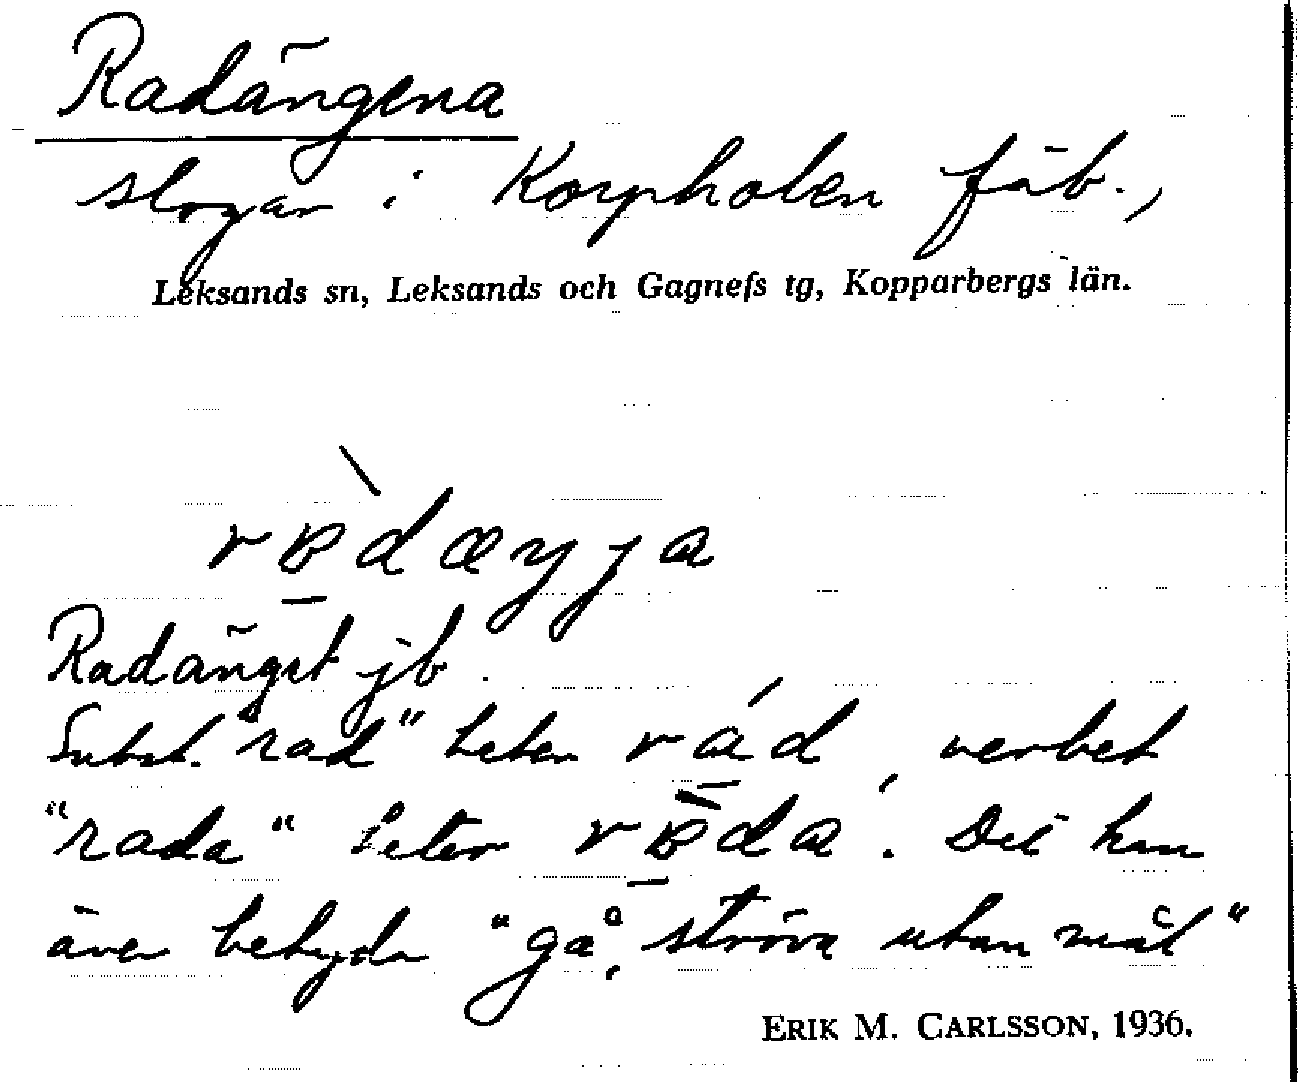 Radängena
slogar i Korpholen fäb.,
Leksands sn, Leksands och Gagnefs tg, Kopparbergs län.
Radänget jb.
Subst. "rad" heter rád, verbet
"rada" heter . Det kan
även betyda "gå, ströva utan mål"
ERIK M. CARLSSON, 1936.